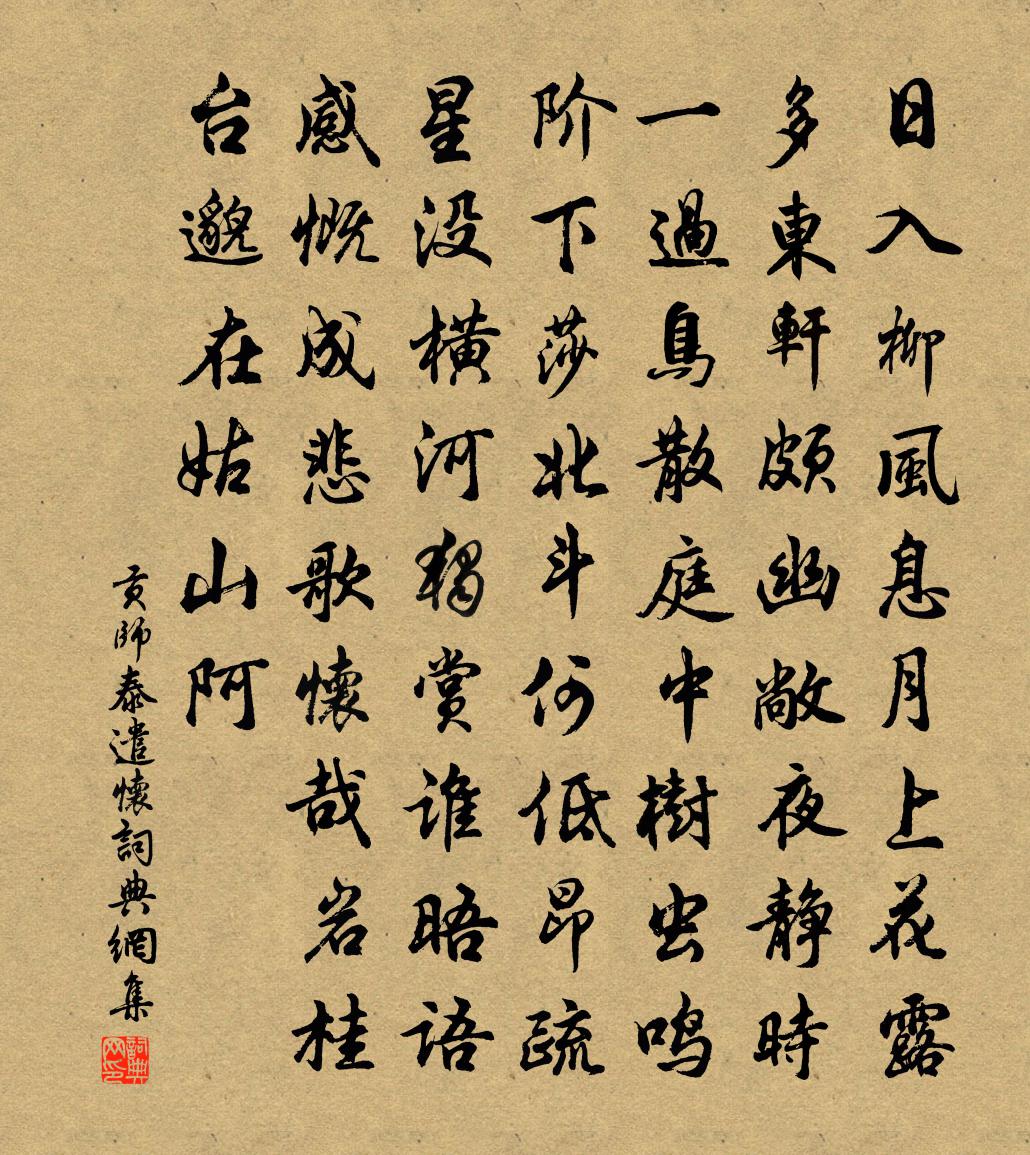 日入柳風息月上花露
多東軒頗幽敞夜靜時
一過鳥散庭中樹虫鸣
阶下莎北斗何低昂疏
星没横河独賞谁晤语
感慨成悲歌懷哉岩桂
台邈在姑山阿
贡師泰遣懷詞典網集
詞典网印